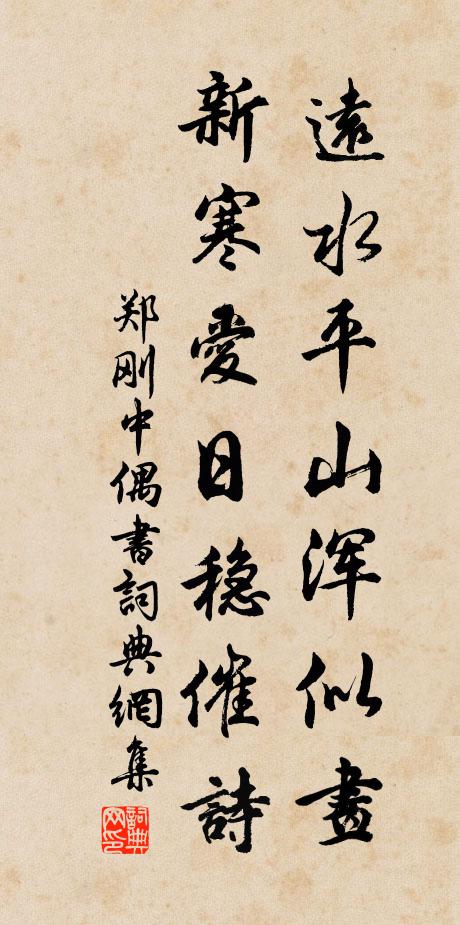 遠水平山浑似畫
新寒愛日穏催詩
郑刚中偶書詞典網集
詞典网印